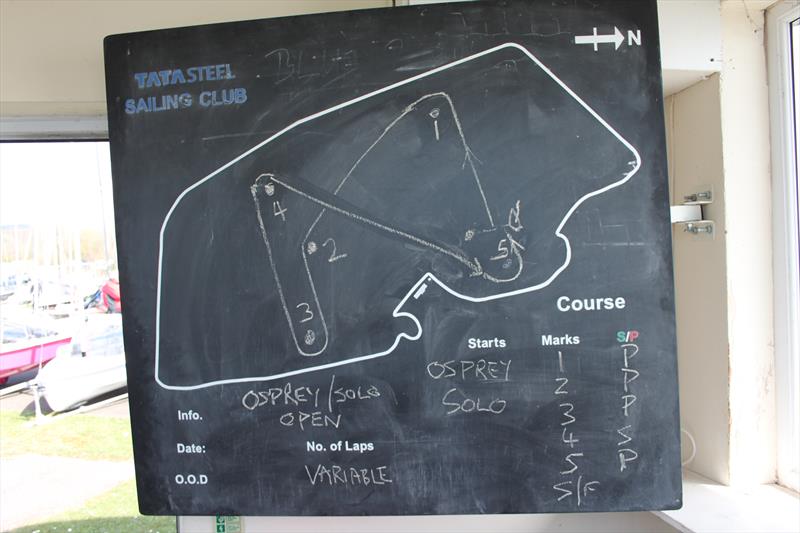 N
TATA STEEL
SAILING CLUB
1
4
2
5
3
Course
Starts Marks S/P
OSPREY 1 P
SOLO 2 P
3 P
4 S
5 P
S/F
Info. OSPREY/SOLO
OPEN
Date: No. of Laps
O.O.D VARIABLE